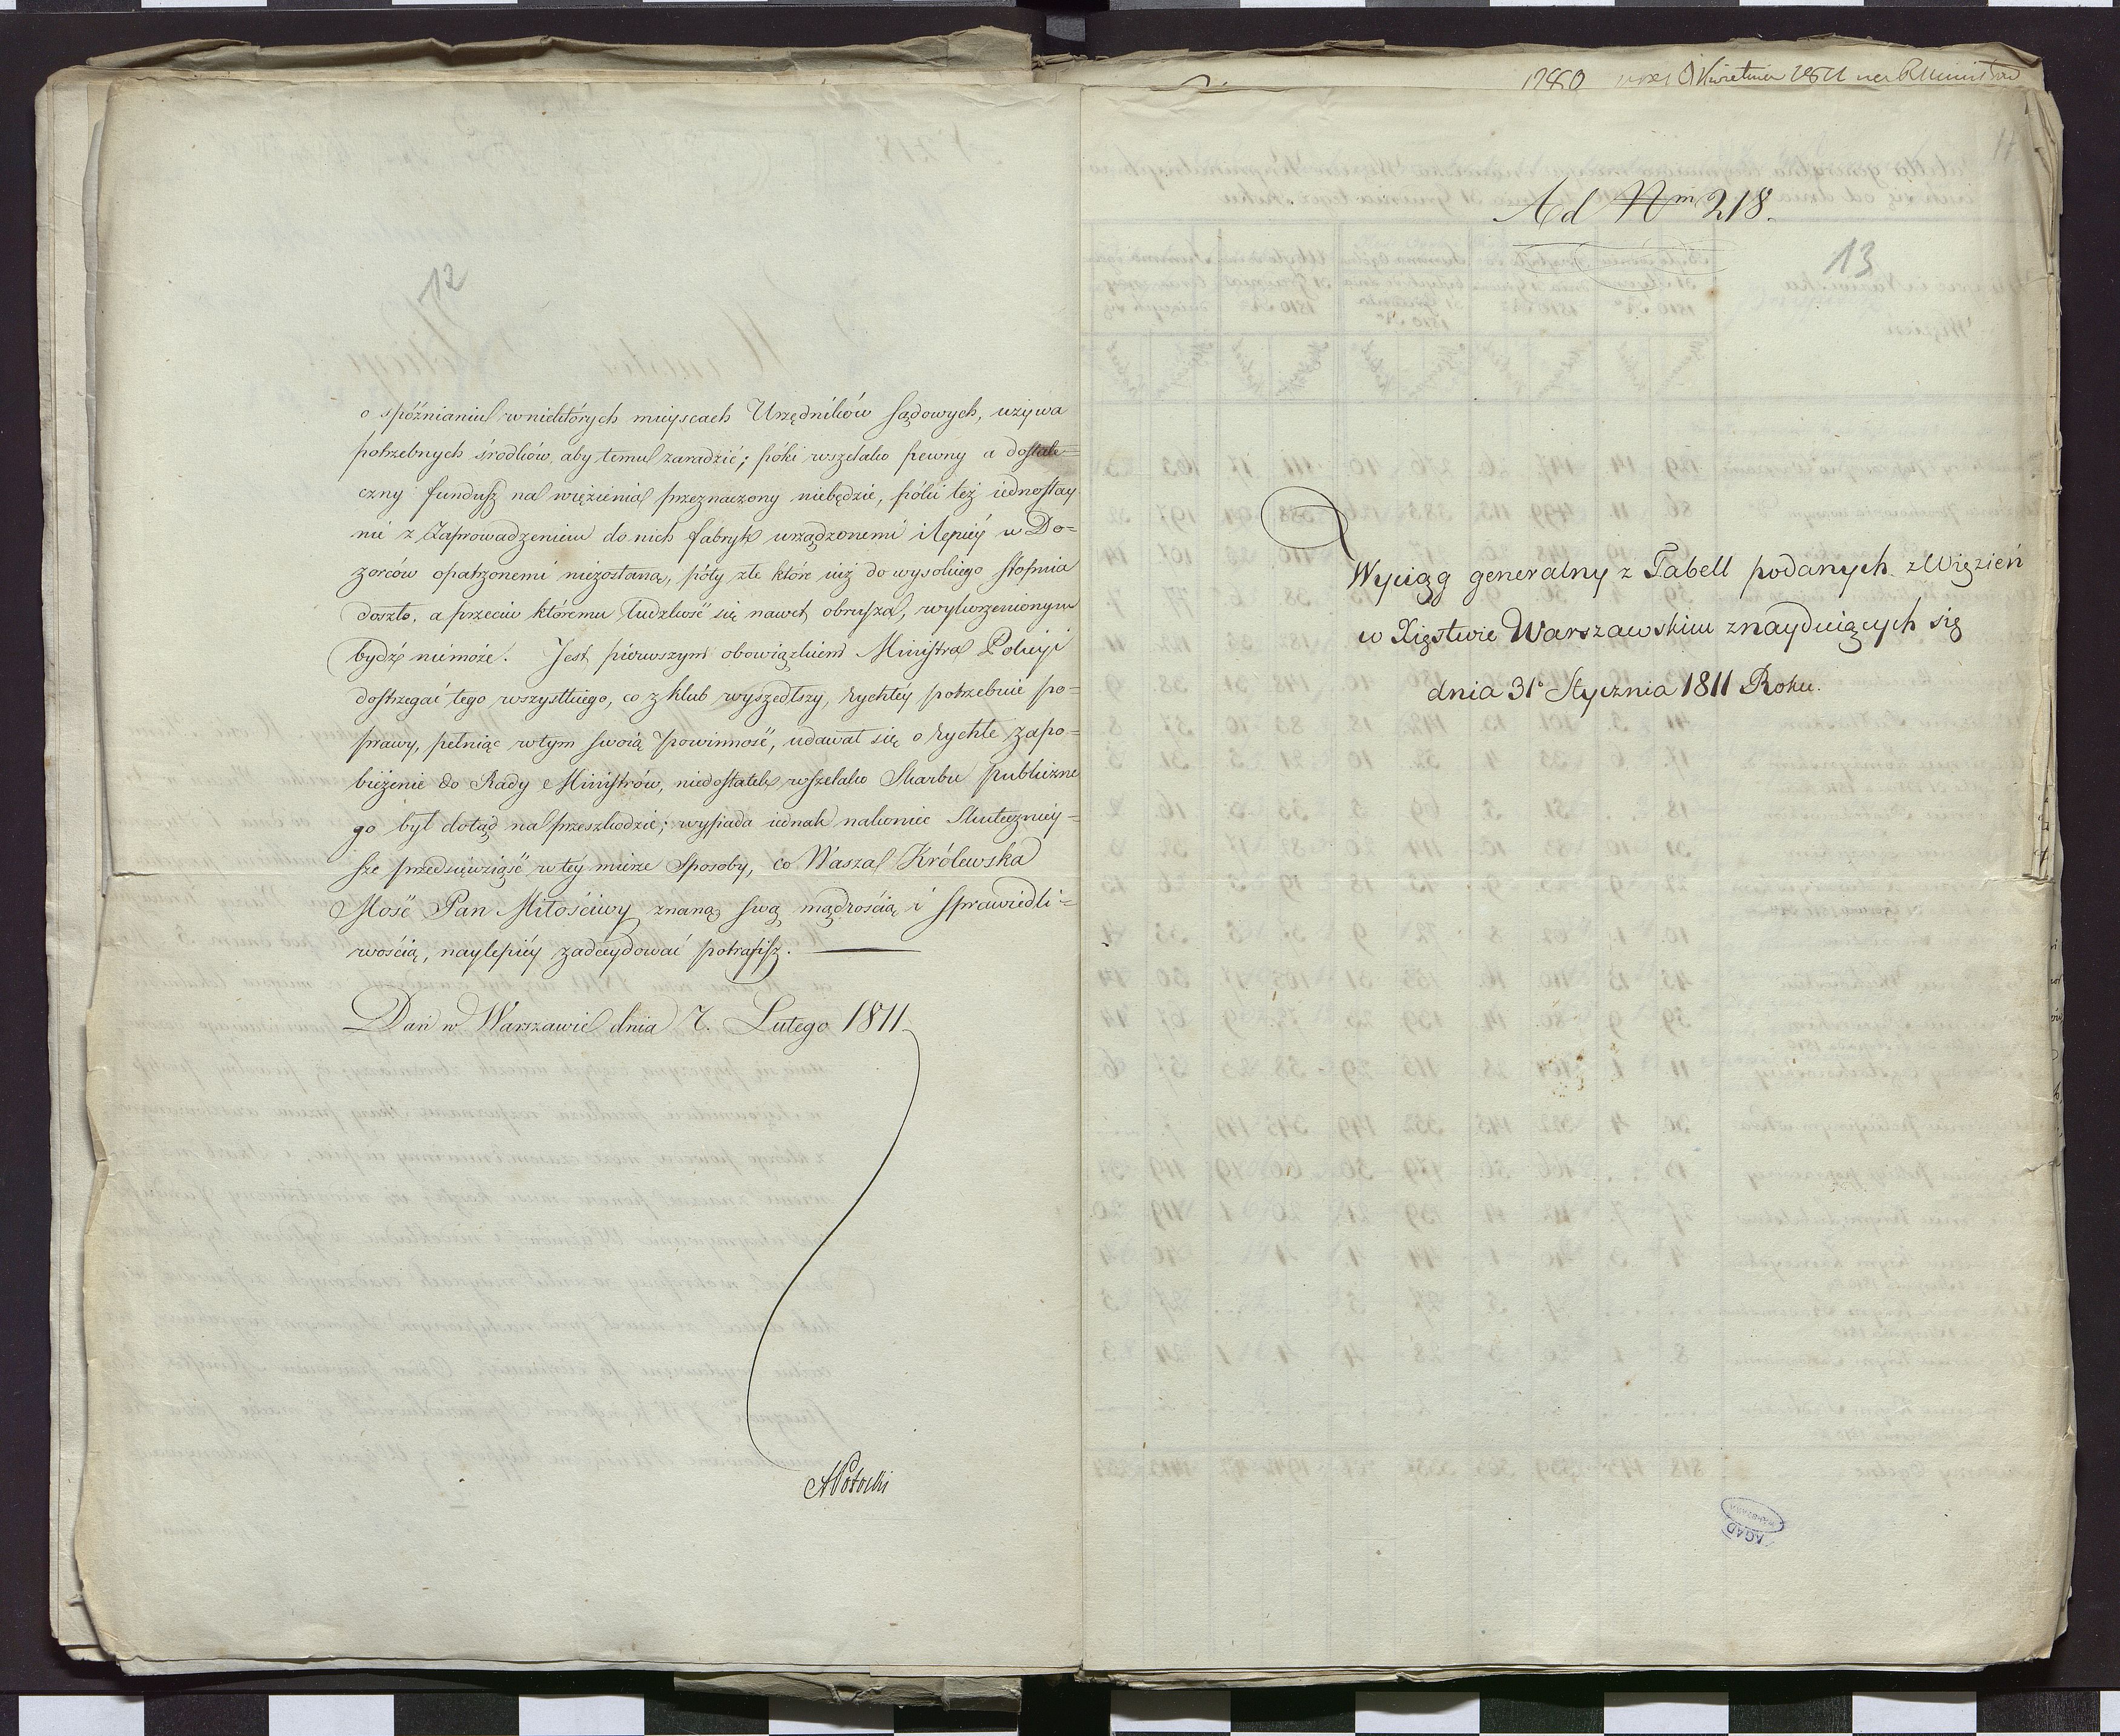 12
o spóźnianiu w niektórych mieyscach Urzędników sądowych, używa
potrzebnych środków, aby temu zaradzić; póki wszelako pewny a dostate=
czny fundusz na więzienia przeznaczony niebędzie, póki też iednostay
nie z Zaprowadzeniem do nich fabryk urządzonemi i lepiéy w Do=
zorców opatrzonemi niezostaną, póty złe które iuż do wysokiego stopnia
doszło, a przeciw któremu ludzkość się nawet obrusza, wykorzenionym
bydź niemoże. Jest pierwszym obowiązkiem Ministra Policyi
dostrzegać tego wszystkiego, co z klub wyszedłszy, rychłéy potrzebuie po=
prawy, pełniąc w tym swoią powinność, udawał się o rychłe zapo=
bieżenie do Rady Ministrów, niedostatek wszelako Skarbu publiczne
go był dotąd na przeszkodzie; wypada iednak nakoniec Skuteczniéy=
sze przedsięwziąść w téy mierze Sposoby, co Wasza Królewska
Mość Pan Miłościwy znaną swą mądrością i sprawiedli=
wością, naylepiéy zadecydować potrafisz.
Dan w Warszawie dnia 7. Lutego 1811
APotocki
1780 Kwietnia 1811 na R Ministrów
Ad Nm 218.
13
Wyciąg generalny z Tabell podanych z Więzień
w Xięstwie Warszawskim znayduiących się
dnia 31° Stycznia 1811 Roku.
AGAD